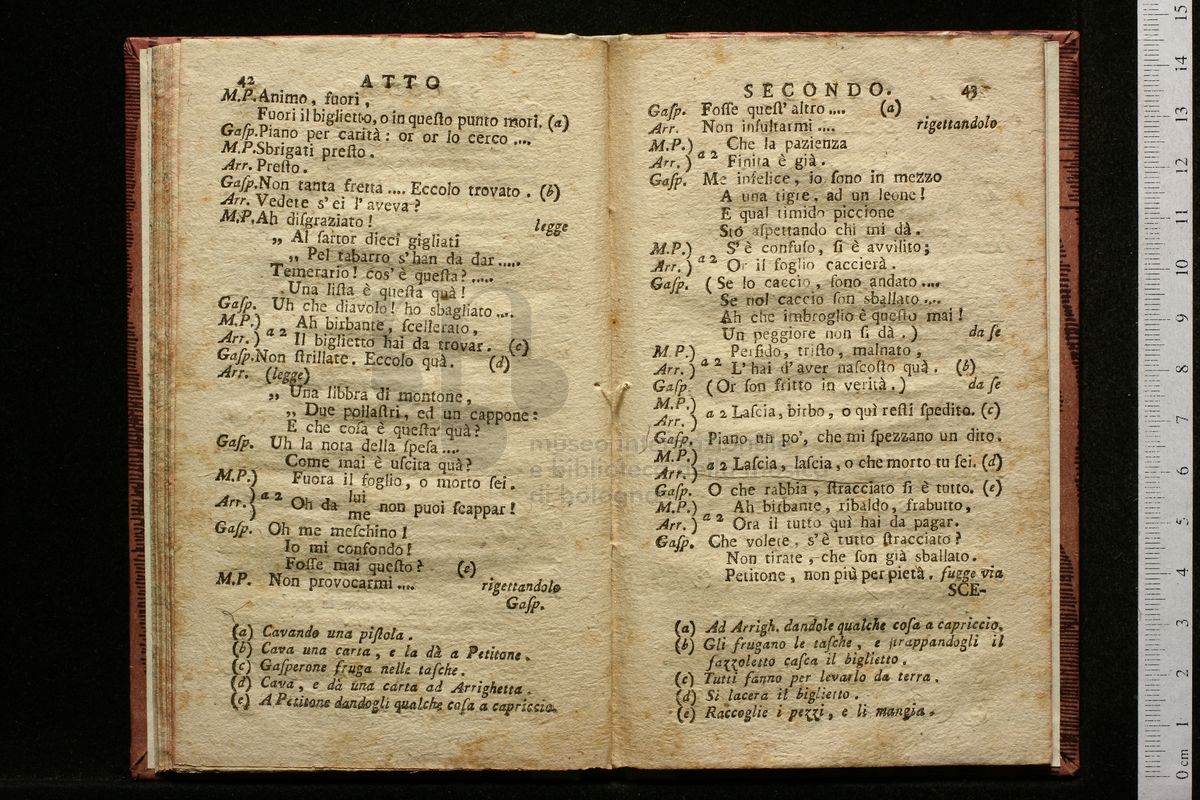 42 ATTO
M.P. Animo, fuori,
Fuori il biglietto, o in queſto punto mori. (a)
Gaſp. Piano per carità: or or lo cerco ....
M.P. Sbrigati preſto.
Arr. Preſto.
Gaſp. Non tanta fretta .... Eccolo trovato. (b)
Arr. Vedete s' ei l' aveva?
M.P. Ah diſgraziato! legge
„ Al ſartor dieci gigliati
„ Pel tabarro s'han da dar .....
Temerario! cos' è queſta? .....
Una liſta è queſta quà!
Gaſp. Uh che diavolo! ho sbagliato ....
M.P.) Ah birbante, ſcellerato,
Arr.) a 2 Il biglietto hai da trovar. (c)
Gaſp. Non ſtrillate. Eccolo quà. (d)
Arr. (legge)
„ Una libbra di montone,
„ Due pollaſtri, ed un cappone:
E che coſa è queſta quà?
Gaſp. Uh la nota della ſpeſa ....
Come mai è uſcita quà?
M.P.) Fuora il foglio, o morto ſei.
Arr.) a 2 Oh da lui me non puoi ſcappar!
Gaſp. Oh me meſchino!
Io mi confondo!
Foſſe mai queſto? (e)
M.P. Non provocarmi .... rigettandolo
Gaſp.
(a) Cavando una piſtola.
(b) Cava una carta, e la dà a Petitone.
(c) Gaſperone fruga nelle taſche.
(d) Cava, e dà una carta ad Arrighetta.
(e) A Petitone dandogli qualche coſa a capriccio.
SECONDO. 43
Gaſp. Foſſe queſt' altro .... (a)
Arr. Non inſultarmi .... rigettandolo
M.P.) Che la pazienza
Arr.) a 2 Finita è già.
Gaſp. Me infelice, io ſono in mezzo
A una tigre, ad un leone!
E qual timido piccione
Stò aſpettando chi mi dà.
M.P.) S' è confuſo, ſi è avvilito;
Arr.) a 2 Or il foglio caccierà.
Gaſp. (Se lo caccio, ſono andato ....
Se nol caccio ſon sballato ....
Ah che imbroglio è queſto mai!
Un peggiore non ſi dà.) da ſe
M.P.) Perfido, triſto, malnato,
Arr.) a 2 L' hai d' aver naſcoſto quà. (b)
Gaſp (Or ſon fritto in verità.) da ſe
M.P.)
Arr.) a 2 Laſcia, birbo, o quì reſti ſpedito. (c)
Gaſp. Piano un po', che mi ſpezzano un dito.
M.P.)
Arr.) a 2 Laſcia, laſcia, o che morto tu ſei. (d)
Gaſp. O che rabbia, ſtracciato ſi è tutto. (e)
M.P.) Ah birbante, ribaldo, frabutto,
Arr.) a 2 Ora il tutto quì hai da pagar.
Gaſp. Che volete, s'è tutto ſtracciato?
Non tirate, che ſon già sballato.
Petitone, non più per pietà. fugge via
SCE-
(a) Ad Arrigh. dandole qualche coſa a capriccio.
(b) Gli frugano le taſche, e ſtrappandogli il
fazzoletto caſca il biglietto.
(c) Tutti fanno per levarlo da terra.
(d) Si lacera il biglietto.
(e) Raccoglie i pezzi, e li mangia.
museo
e biblioteca
di bologna
15
14
13
12
11
10
9
8
7
6
5
4
3
2
1
0 cm